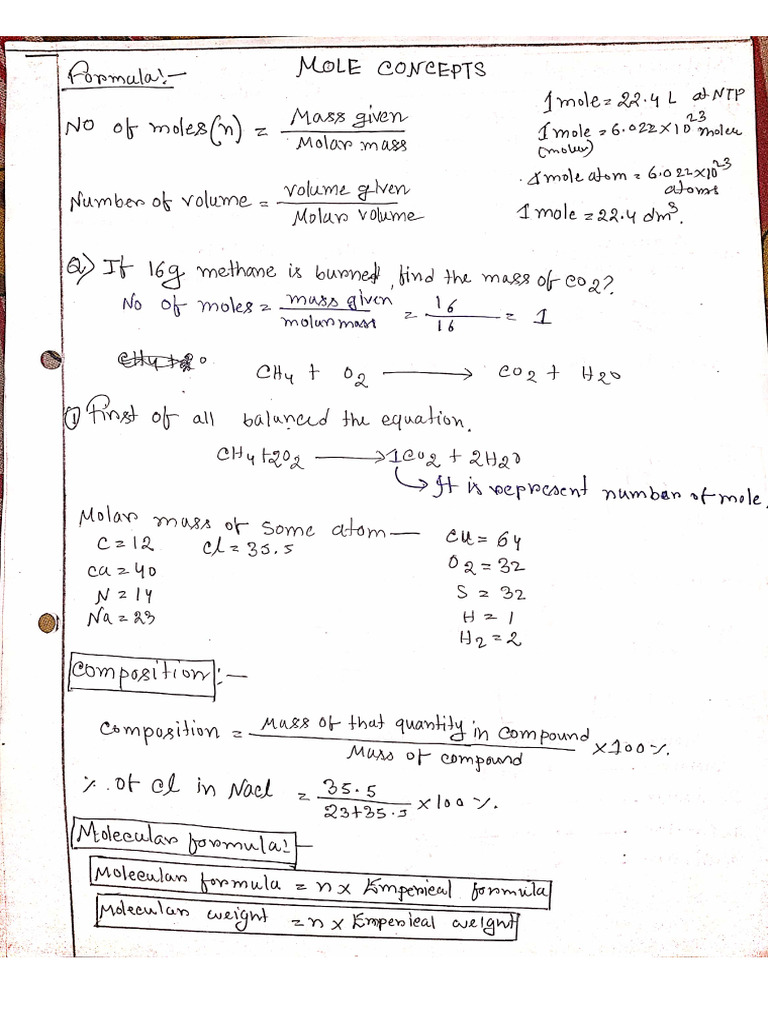 MOLE CONCEPTS
Formula:-
NO of moles(n) = Mass given / Molar mass
1 mole = 22.4 L at NTP
1 mole = 6.022×10^23 molecu
(molecu)
.1 mole atom = 6.022×10^23 atoms
1 mole = 22.4 dm³.
Number of volume = volume given / Molar volume
Q) If 16g methane is burned, find the mass of CO2?
No of moles = mass given / molar mass = 16 / 16 = 1
CH4 + O2 → CO2 + H2O
① First of all balanced the equation.
CH4+2O2 → 1CO2 + 2H2O
It is represent number of mole.
Molar mass of some atom—
C = 12 Cl = 35.5
Ca = 40
N = 14
Na = 23
Cu = 64
O2 = 32
S = 32
H = 1
H2 = 2
Composition:-
Composition = Mass of that quantity in compound / Mass of compound ×100%.
% of Cl in NaCl = 35.5 / 23+35.5 ×100%.
Molecular formula:-
Molecular formula = n× Emperical formula
Molecular weight = n× Emperical weight